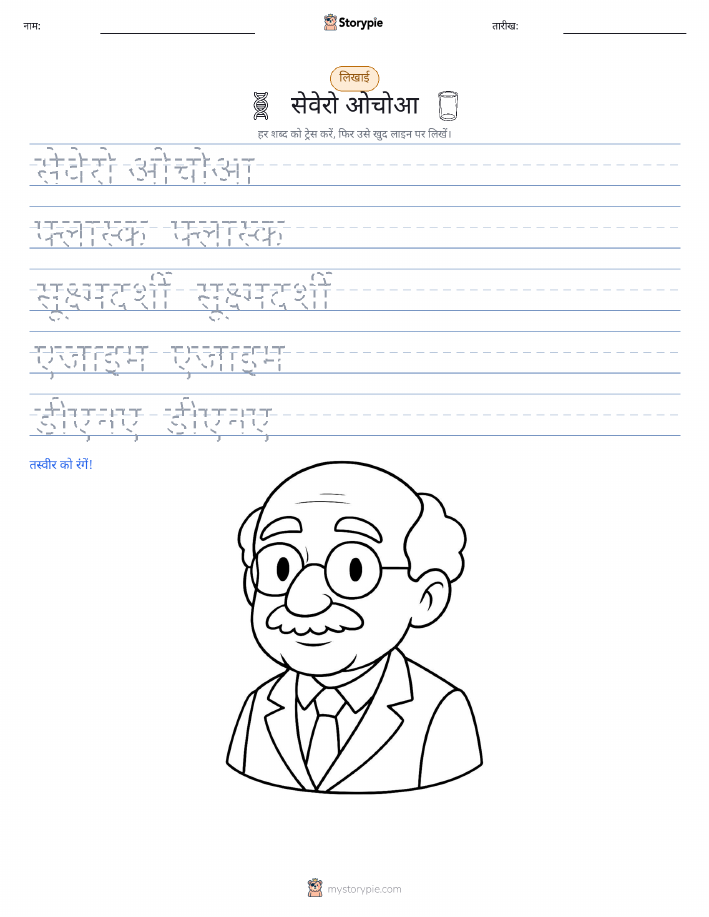 नाम: Storypie तारीख:
लिखाई
सेवेरो ओचोआ
हर शब्द को ट्रेस करें, फिर उसे खुद लाइन पर लिखें।
सेवेरो ओचोआ
फ्लास्क फ्लास्क
सूक्ष्मदर्शी सूक्ष्मदर्शी
एंजाइम एंजाइम
डीएनए डीएनए
तस्वीर को रंगें!
mystorypie.com